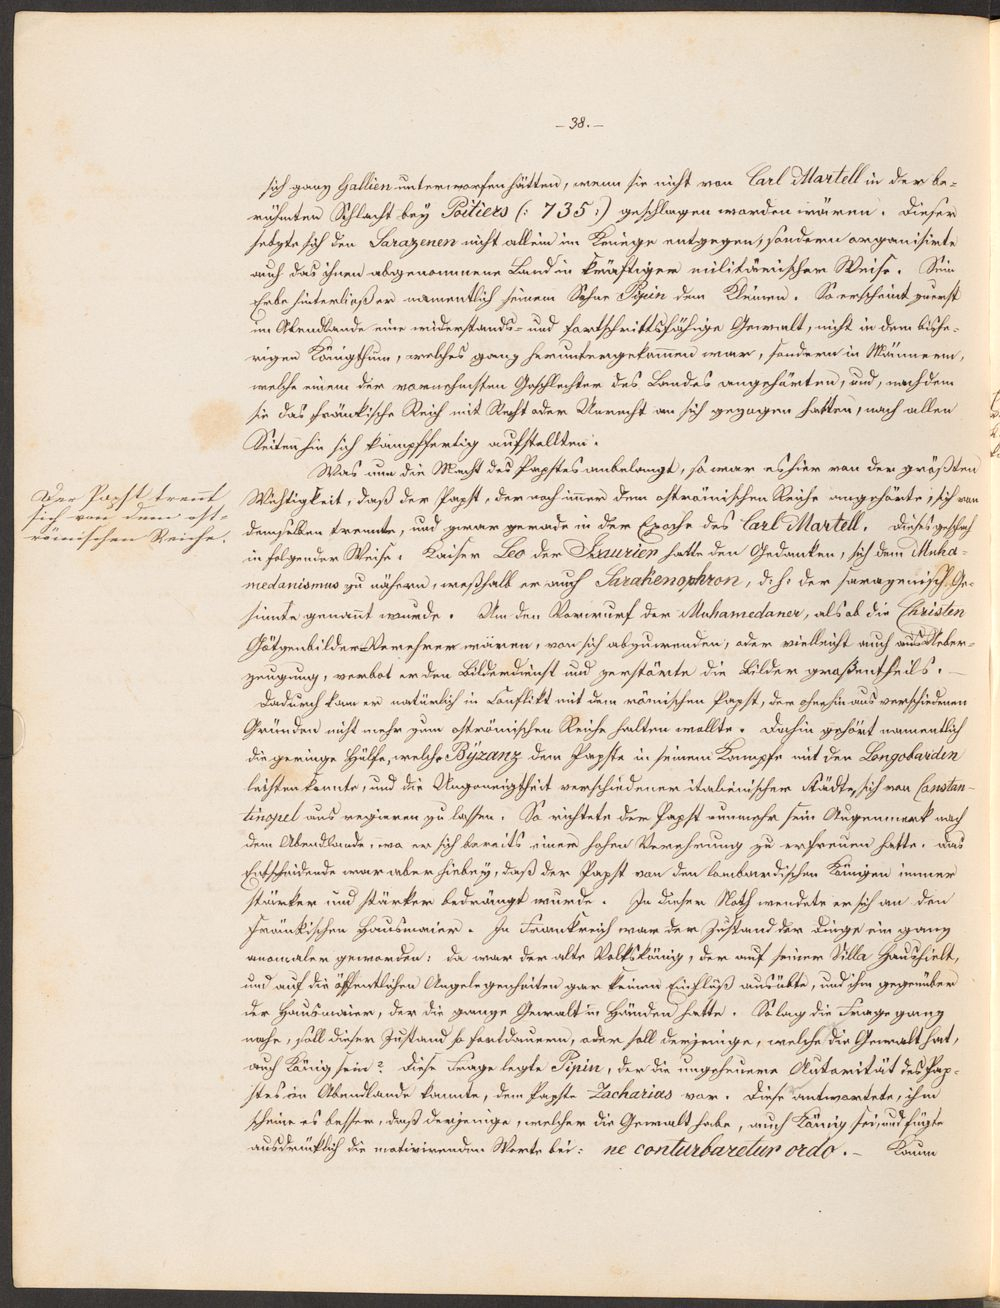 – 38. –
sich ganz Gallien unterworfen hätten, wenn sie nicht von Carl Martell in der be-
rühmten Schlacht bey Poitiers (: 735 :) geschlagen worden wären. Dieser
setzte sich den Sarazenen nicht allein im Kriege entgegen, sondern organisirte
auch das ihnen abgenommene Land in kräftiger militärischer Weise. Sein
Erbe hinterließ er namentlich seinem Sohne Pipin dem Kleinen. So erscheint zuerst
im Abendlande eine widerstands- und fortschrittsfähige Gewalt, nicht in dem bishe-
rigen Königthum, welches ganz heruntergekommen war, sondern in Männern,
welche einem der vornehmsten Geschlechter des Landes angehörten, und, nachdem
sie das fränkische Reich mit Recht oder Unrecht an sich gezogen hatten, nach allen
Seiten hin sich kampffertig aufstellten.
Was nun die Macht des Papstes anbelangt, so war es hier von der größten
Der Papst trennt
sich von dem ost-
römischen Reiche.
Wichtigkeit, daß der Papst, der noch immer dem oströmischen Reiche angehörte, sich von
demselben trennte, und zwar gerade in der Epoche des Carl Martell. Dieses geschah
in folgender Weise. Kaiser Leo der Isaurier hatte den Gedanken, sich dem Muha-
medanismus zu nähern, weßhalb er auch Sarakenophron, d. h. der sarazenisch Ge-
sinnte genannt wurde. Um den Vorwurf der Muhamedaner, als ob die Christen
Götzenbilder-Verehrer wären, von sich abzuwenden, oder vielleicht auch aus Ueber-
zeugung, verbot er den Bilderdienst und zerstörte die Bilder großentheils. –
Dadurch kam er natürlich in Conflikt mit dem römischen Papst, der ohnehin aus verschiedenen
Gründen nicht mehr zum oströmischen Reiche halten wollte. Dahin gehört namentlich
die geringe Hülfe, welche Byzanz dem Papste in seinem Kampfe mit den Longobarden
leisten konnte, und die Ungeneigtheit verschiedener italienischer Städte, sich von Constan-
tinopel aus regieren zu lassen. So richtete der Papst nunmehr sein Augenmerk nach
dem Abendlande, wo er sich bereits einer hohen Verehrung zu erfreuen hatte. Das
Entscheidende war aber hiebey, daß der Papst von den lombardischen Königen immer
stärker und stärker bedrängt wurde. In dieser Noth wendete er sich an den
fränkischen Hausmaier. In Frankreich war der Zustand der Dinge ein ganz
anomaler geworden: da war der alte Volkskönig, der auf seiner Villa Haus hielt,
und auf die öffentlichen Angelegenheiten gar keinen Einfluß ausübte, und ihm gegenüber
der Hausmaier, der die ganze Gewalt in Händen hatte. So lag die Frage ganz
nahe, soll dieser Zustand so fortdauern, oder soll derjenige, welcher die Gewalt hat,
auch König sein? Diese Frage legte Pipin, der die ungeheuere Autorität des Pap-
stes im Abendlande kannte, dem Papste Zacharias vor. Dieser antwortete, ihm
scheine es besser, daß derjenige, welcher die Gewalt habe, auch König sei, und fügte
ausdrücklich die motivirenden Worte bei: ne conturbaretur ordo. – Kaum